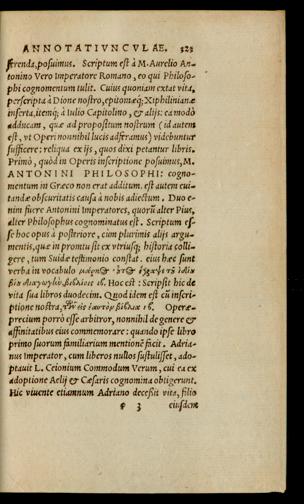 ANNOTATIVNCVLAE. 323
ferenda, posuimus. Scriptum est à M. Aurelio An-
tonino Vero Imperatore Romano, eo qui Philoso-
phi cognomentum tulit. Cuius quoniam extat vita,
perscripta à Dione nostro, epitomæq; Xiphilinianæ
inserta, itemq; à Iulio Capitolino, & alijs: ea modò
adducam, quæ ad propositum nostrum (id autem
est, vt Operi nonnihil lucis adferamus) videbuntur
sufficere: reliqua ex ijs, quos dixi petantur libris.
Primò, quòd in Operis inscriptione posuimus, M.
ANTONINI PHILOSOPHI: cogno-
mentum in Græco non erat additum. est autem eui-
tandæ obscuritatis causa à nobis adiectum. Duo e-
nim fuere Antonini Imperatores, quorũ alter Pius,
alter Philosophus cognominatus est. Scriptum es-
se hoc opus à posteriore, cum plurimis alijs argu-
mentis, quæ in promtu sit ex vtriusq; historia colli-
gere, tum Suidæ testimonio constat. eius hæc sunt
verba in vocabulo
βίβλοις ιβ. Hoc est: Scripsit hic de
vita sua libros duodecim. Quod idem est cũ inscri-
ptione nostra, ἑαυτὸν βιβλία ιβ. Operæ-
precium porrò esse arbitror, nonnihil de genere &
affinitatibus eius commemorare: quando ipse libro
primo suorum familiarium mentionẽ facit. Adria-
nus Imperator, cum liberos nullos sustulisset, ado-
ptauit L. Ceionium Commodum Verum, cui ea ex
adoptione Aelij & Cæsaris cognomina obtigerunt.
Hic viuente etiamnum Adriano decessit vita, filio
3 eiusdem